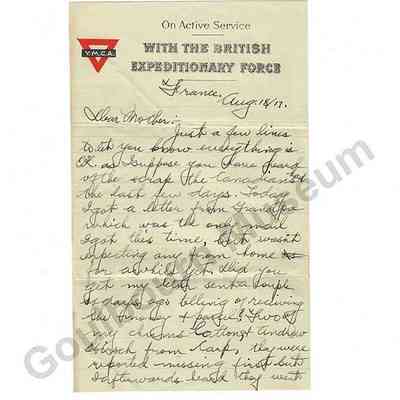 On Active Service
Y.M.C.A.
WITH THE BRITISH
EXPEDITIONARY FORCE
France,
Aug. 18/17.
Dear Mother:
Just a few lines
to let you know everything is
O.K. as suppose you have heard
of the scrap the Canadians
the last few days. Today
I got a letter from Grandpa
which was the only mail
I got this time, but wasn't
expecting any from home
for a while yet. Did you
get my letter sent a couple
of days ago telling of receiving
the money & parcel? Two of
my chums Cotton & Andrew
from Carp, they were
reported missing first but
afterwards heard they went
Goulbourn Museum